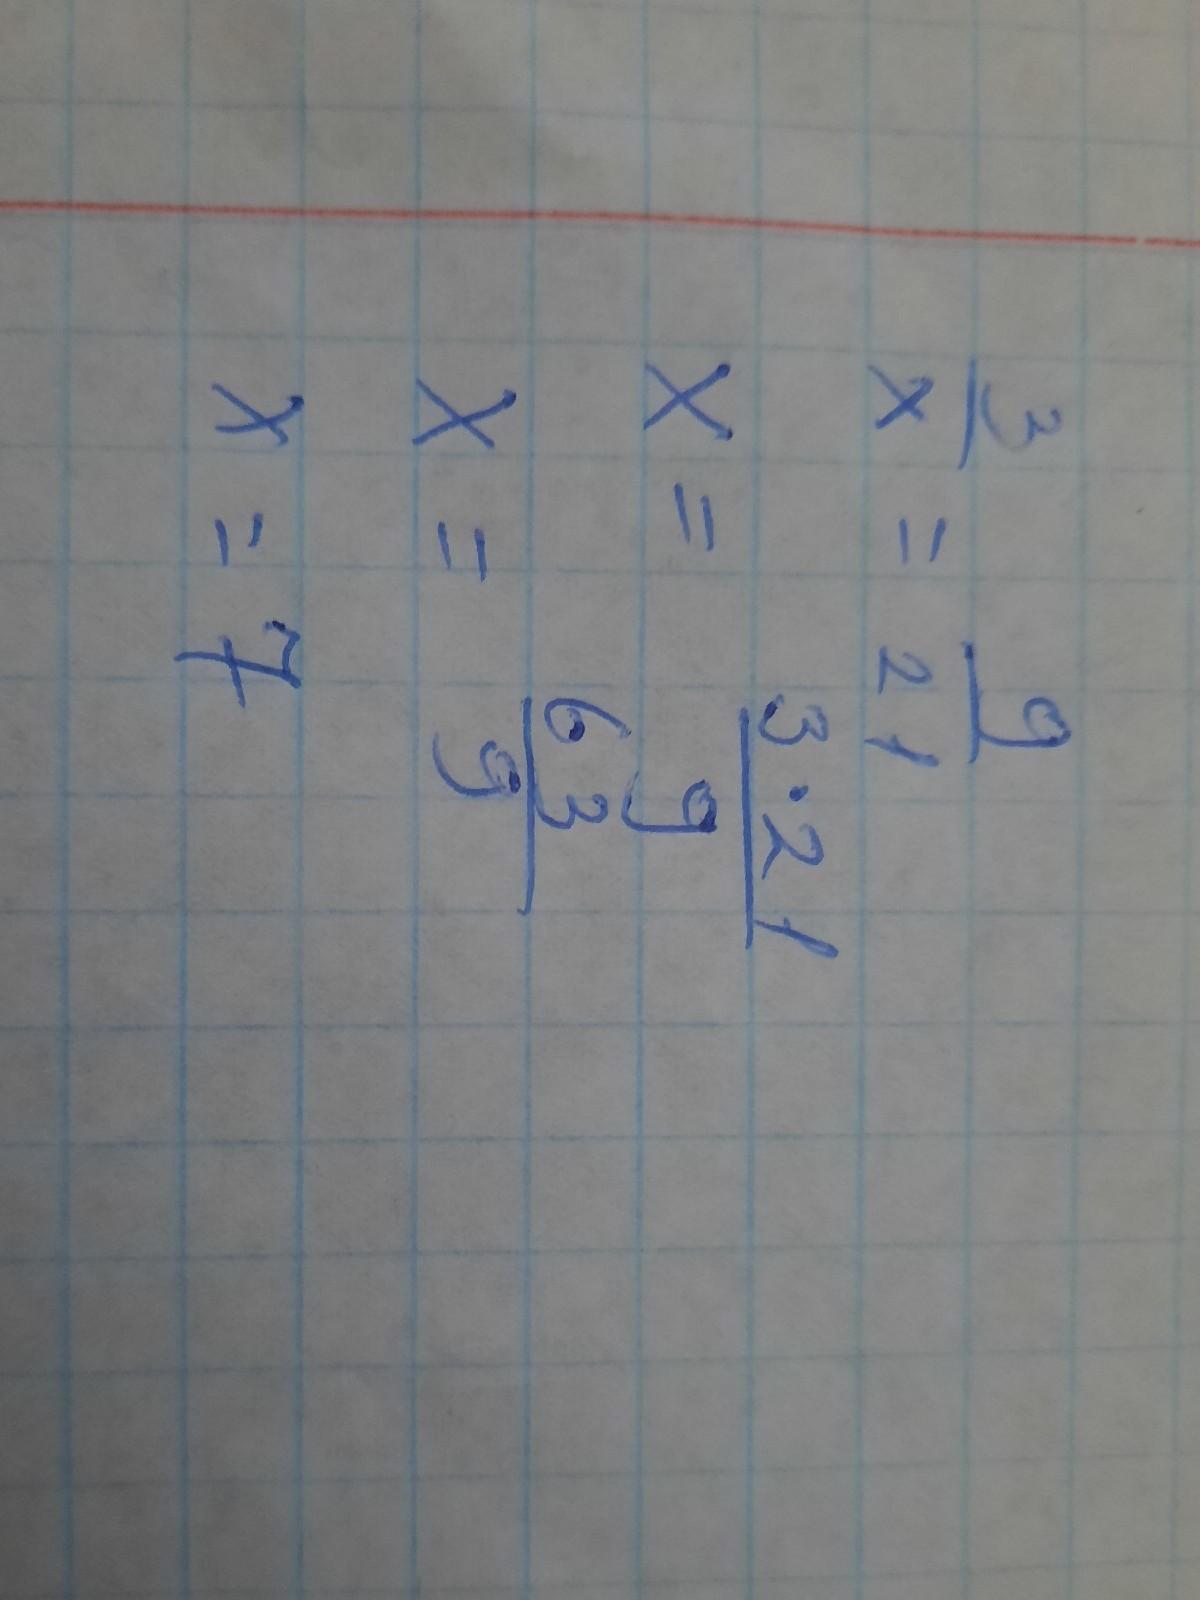 3/x = 9/21
x = 3·21/9
x = 63/9
x = 7